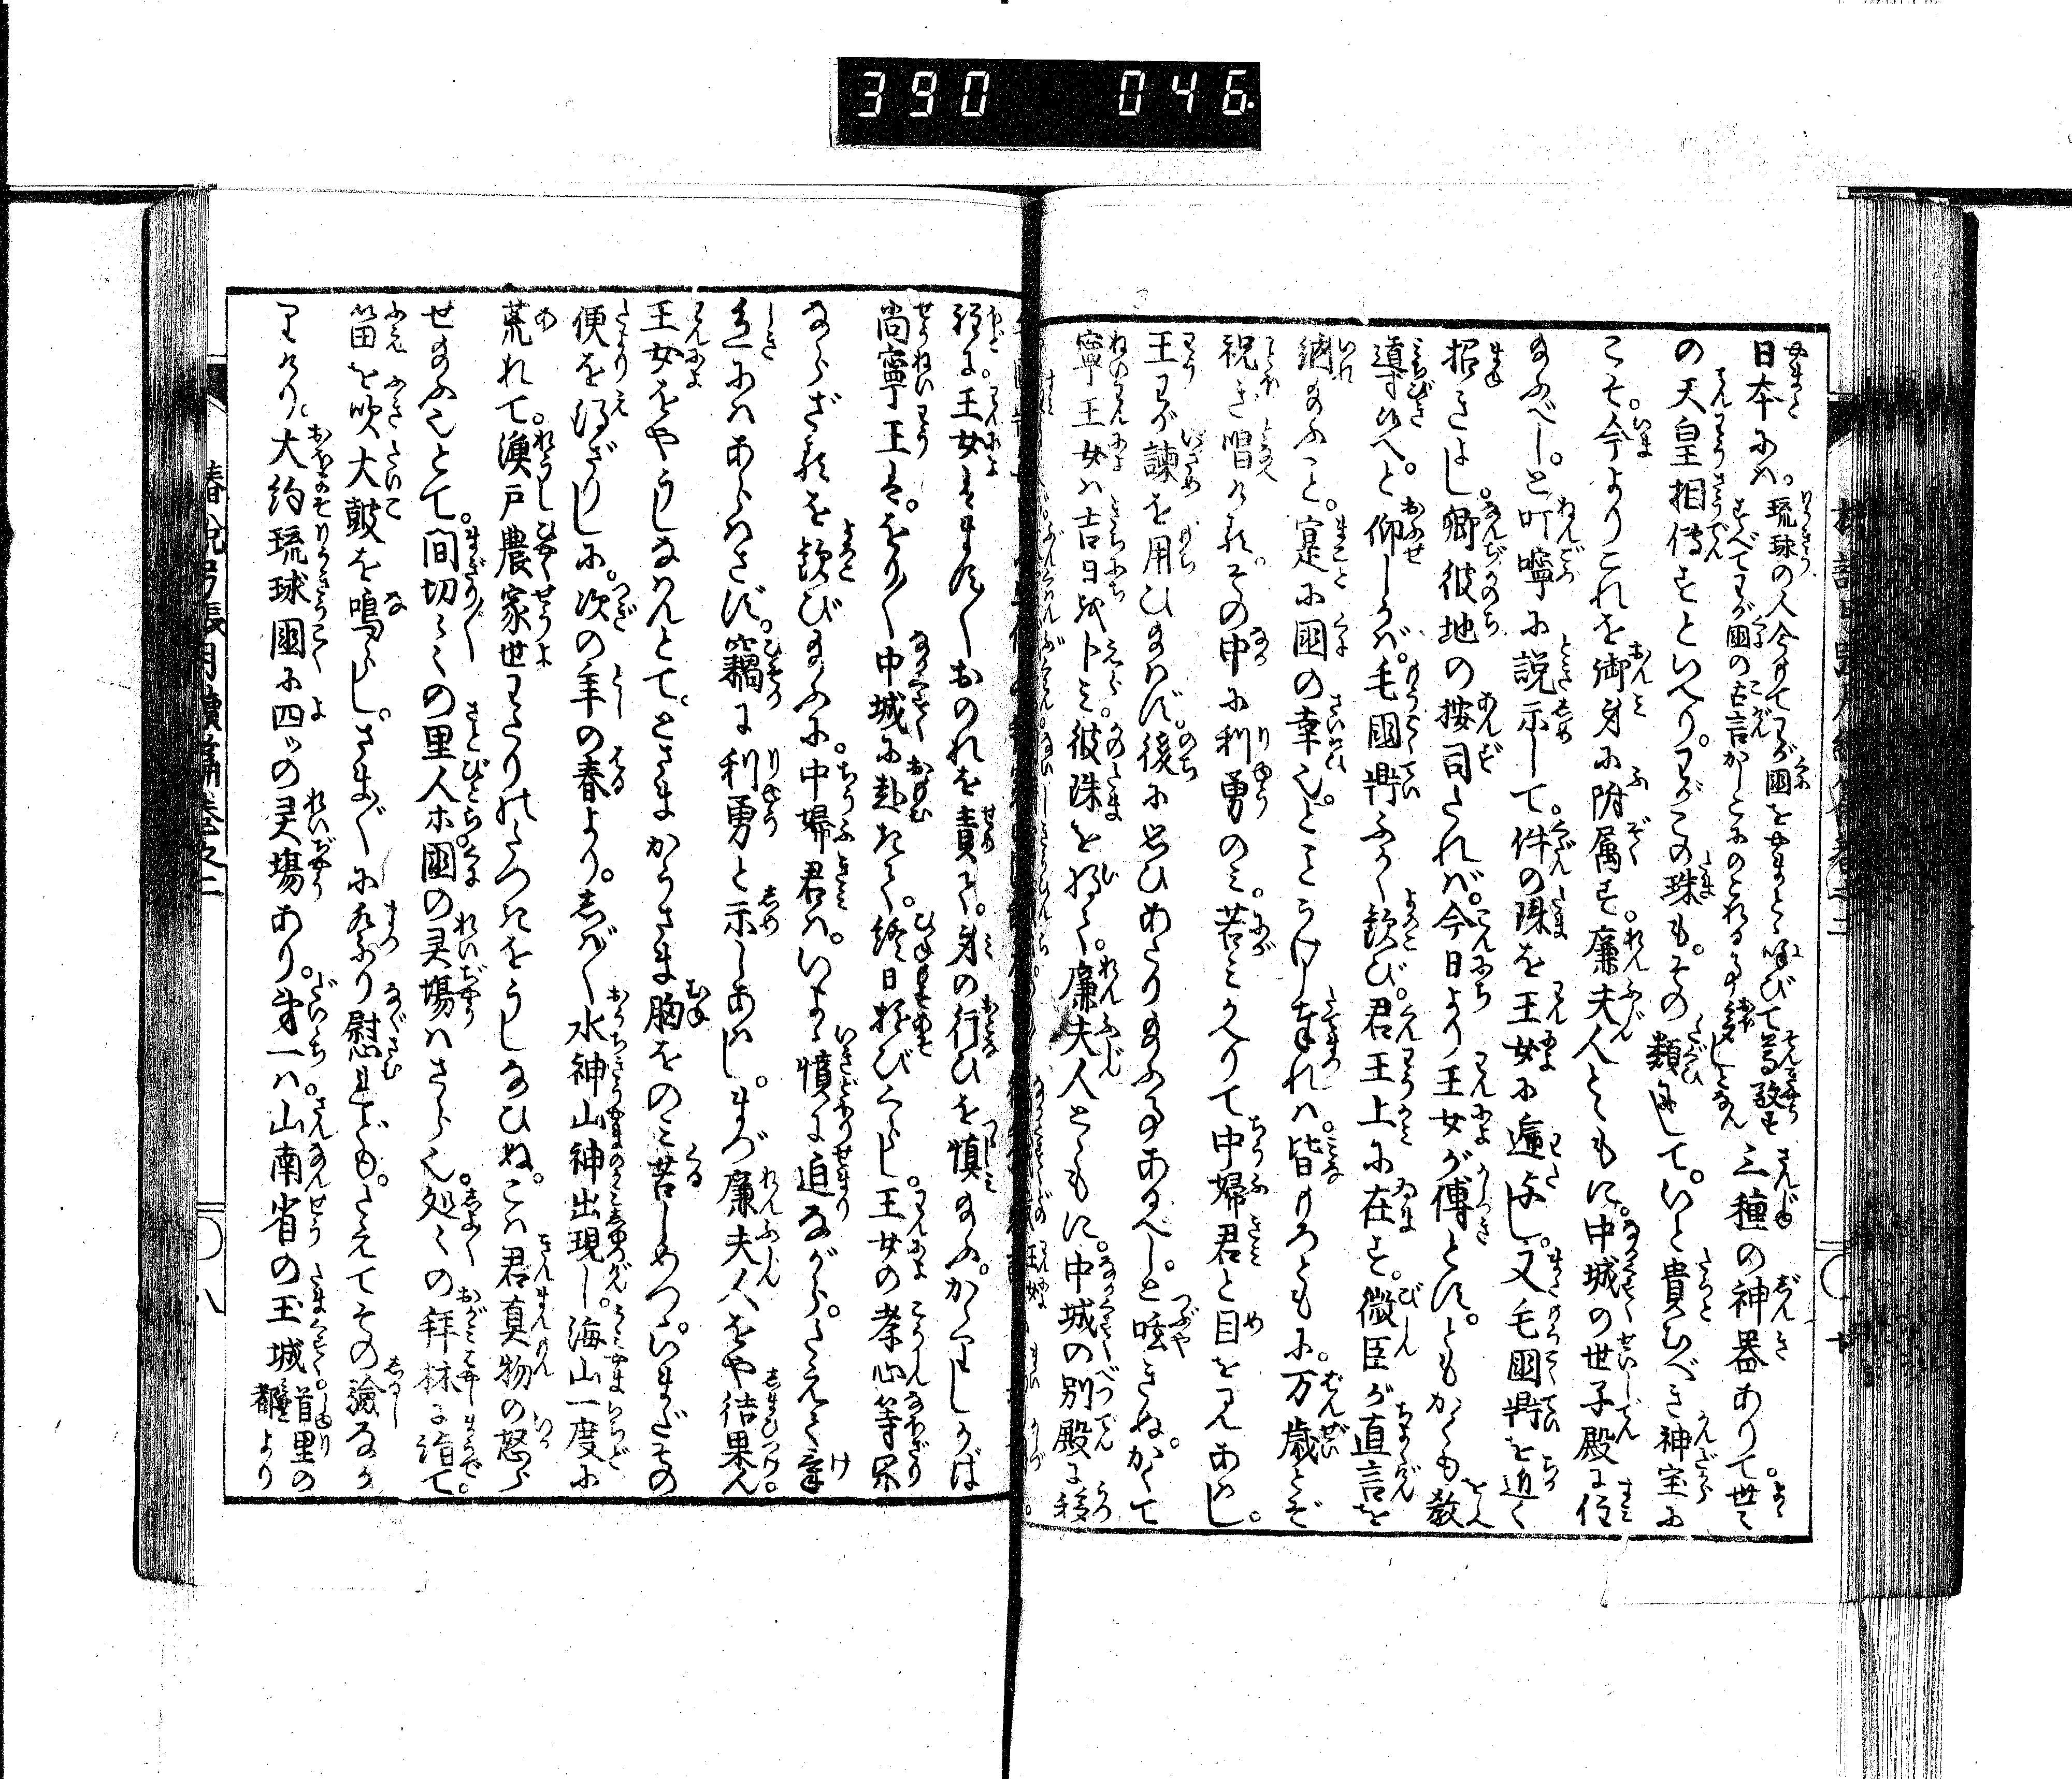 390 046
日本にハ。琉球の人今すべてわが國をやまとゝ呼びて尊敬す
三種の神器ありて。世々
の天皇相傳すといへり。わがこの珠も。その類にして。いと貴むべき神宝に
こそ。今よりこれを御身に附属す。廉夫人とゝもに。中城の世子殿に住
給ふべし。と叮嚀に説示して。件の珠を王女に遞与し。又毛國鼎を近く
招きよし。卿彼地の按司たれバ。今日より王女が傅とす。ともかくも教
導き候へ。と仰しかバ。毛國鼎ふかく歓び。君王上に在す。微臣が直言を
納給ふこと。寔に國の幸也。とことうけし奉れハ。皆もろともに。万歳とぞ
祝ぎ唱ける。その中に利勇のミ。苦ミかへりて中婦君と目を見あハし。
王わが諫を用ひ給ハず。後に思ひあたり給ふ事あるべし。と呟きぬ。かくて
寧王女ハ吉日を卜ミ。彼珠を携て。廉夫人とゝもに。中城の別殿に移
程に。王女ますます／＼おのれを責て。身の行ひを慎ミ給ふ。かゝりしかば
尚寧王も。をり／＼中城に赴きて。終日遊びくらし。王女の孝心等閑
ならざるを歓び給ふに。中婦君ハ。いよゝ憤に迫ながら。さえて氣
色にハあらハさず。竊に利勇と示しあハし。まづ廉夫人をや結果ん
王女をやうしなハんとて。とさまかうさま胸をのミ苦しめつゝ。いまだその
便を得ざりしに。次の年の春より。しば／＼水神山神出現し。海山一度に
荒れて。漁戸農家世わたりのたつきをうしなひぬ。こハ君真物の怒ら
せ給ふ也とて。間切／＼の里人等。國の灵塲ハさら也。処々の拜林に詣て。
笛を吹大皷を鳴らし。さま／＼に祭り慰れども。たえてその驗なか
りけり。大約琉球國に四ッの灵塲あり。第一ハ山南省の玉城 首里の都より
椿説弓張月續編巻之二
八